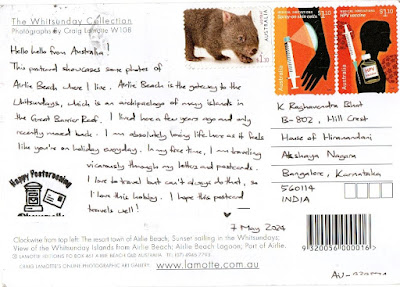 The Whitsunday Collection
Photography by Craig Lamotte W108
Hello hello from Australia!
This postcard showcases some photos of
Airlie Beach where I live. Airlie Beach is the gateway to the
Whitsundays, which is an archipelago of many islands in
the Great Barrier Reef. I lived here a few years ago and only
recently moved back. I am absolutely loving life here as it feels
like you're on holiday everyday. In my free time, I am travelling
vicariously through my letters and postcards.
I love to travel but can't always do that, so
I love this hobby. I hope this postcard
travels well!
7 May 2024
Happy Postcrossing
AUSTRALIA
$1.10
MEDICAL INNOVATIONS
Spray-on skin cells
$1.10
Australia
MEDICAL INNOVATIONS
HPV vaccine
$1.10
Australia
K Raghavendra Bhat
B-802, Hill Crest
House of Hiranandani
Akshaya Nagara
Bangalore, Karnataka
560114
INDIA
9 320056 000016
AU-
Clockwise from top left: The resort town of Airlie Beach; Sunset sailing in the Whitsundays;
View of the Whitsunday Islands from Airlie Beach; Airlie Beach Lagoon; Port of Airlie.
CRAIG LAMOTTE'S ONLINE PHOTOGRAPHIC ART GALLERY www.lamotte.com.au